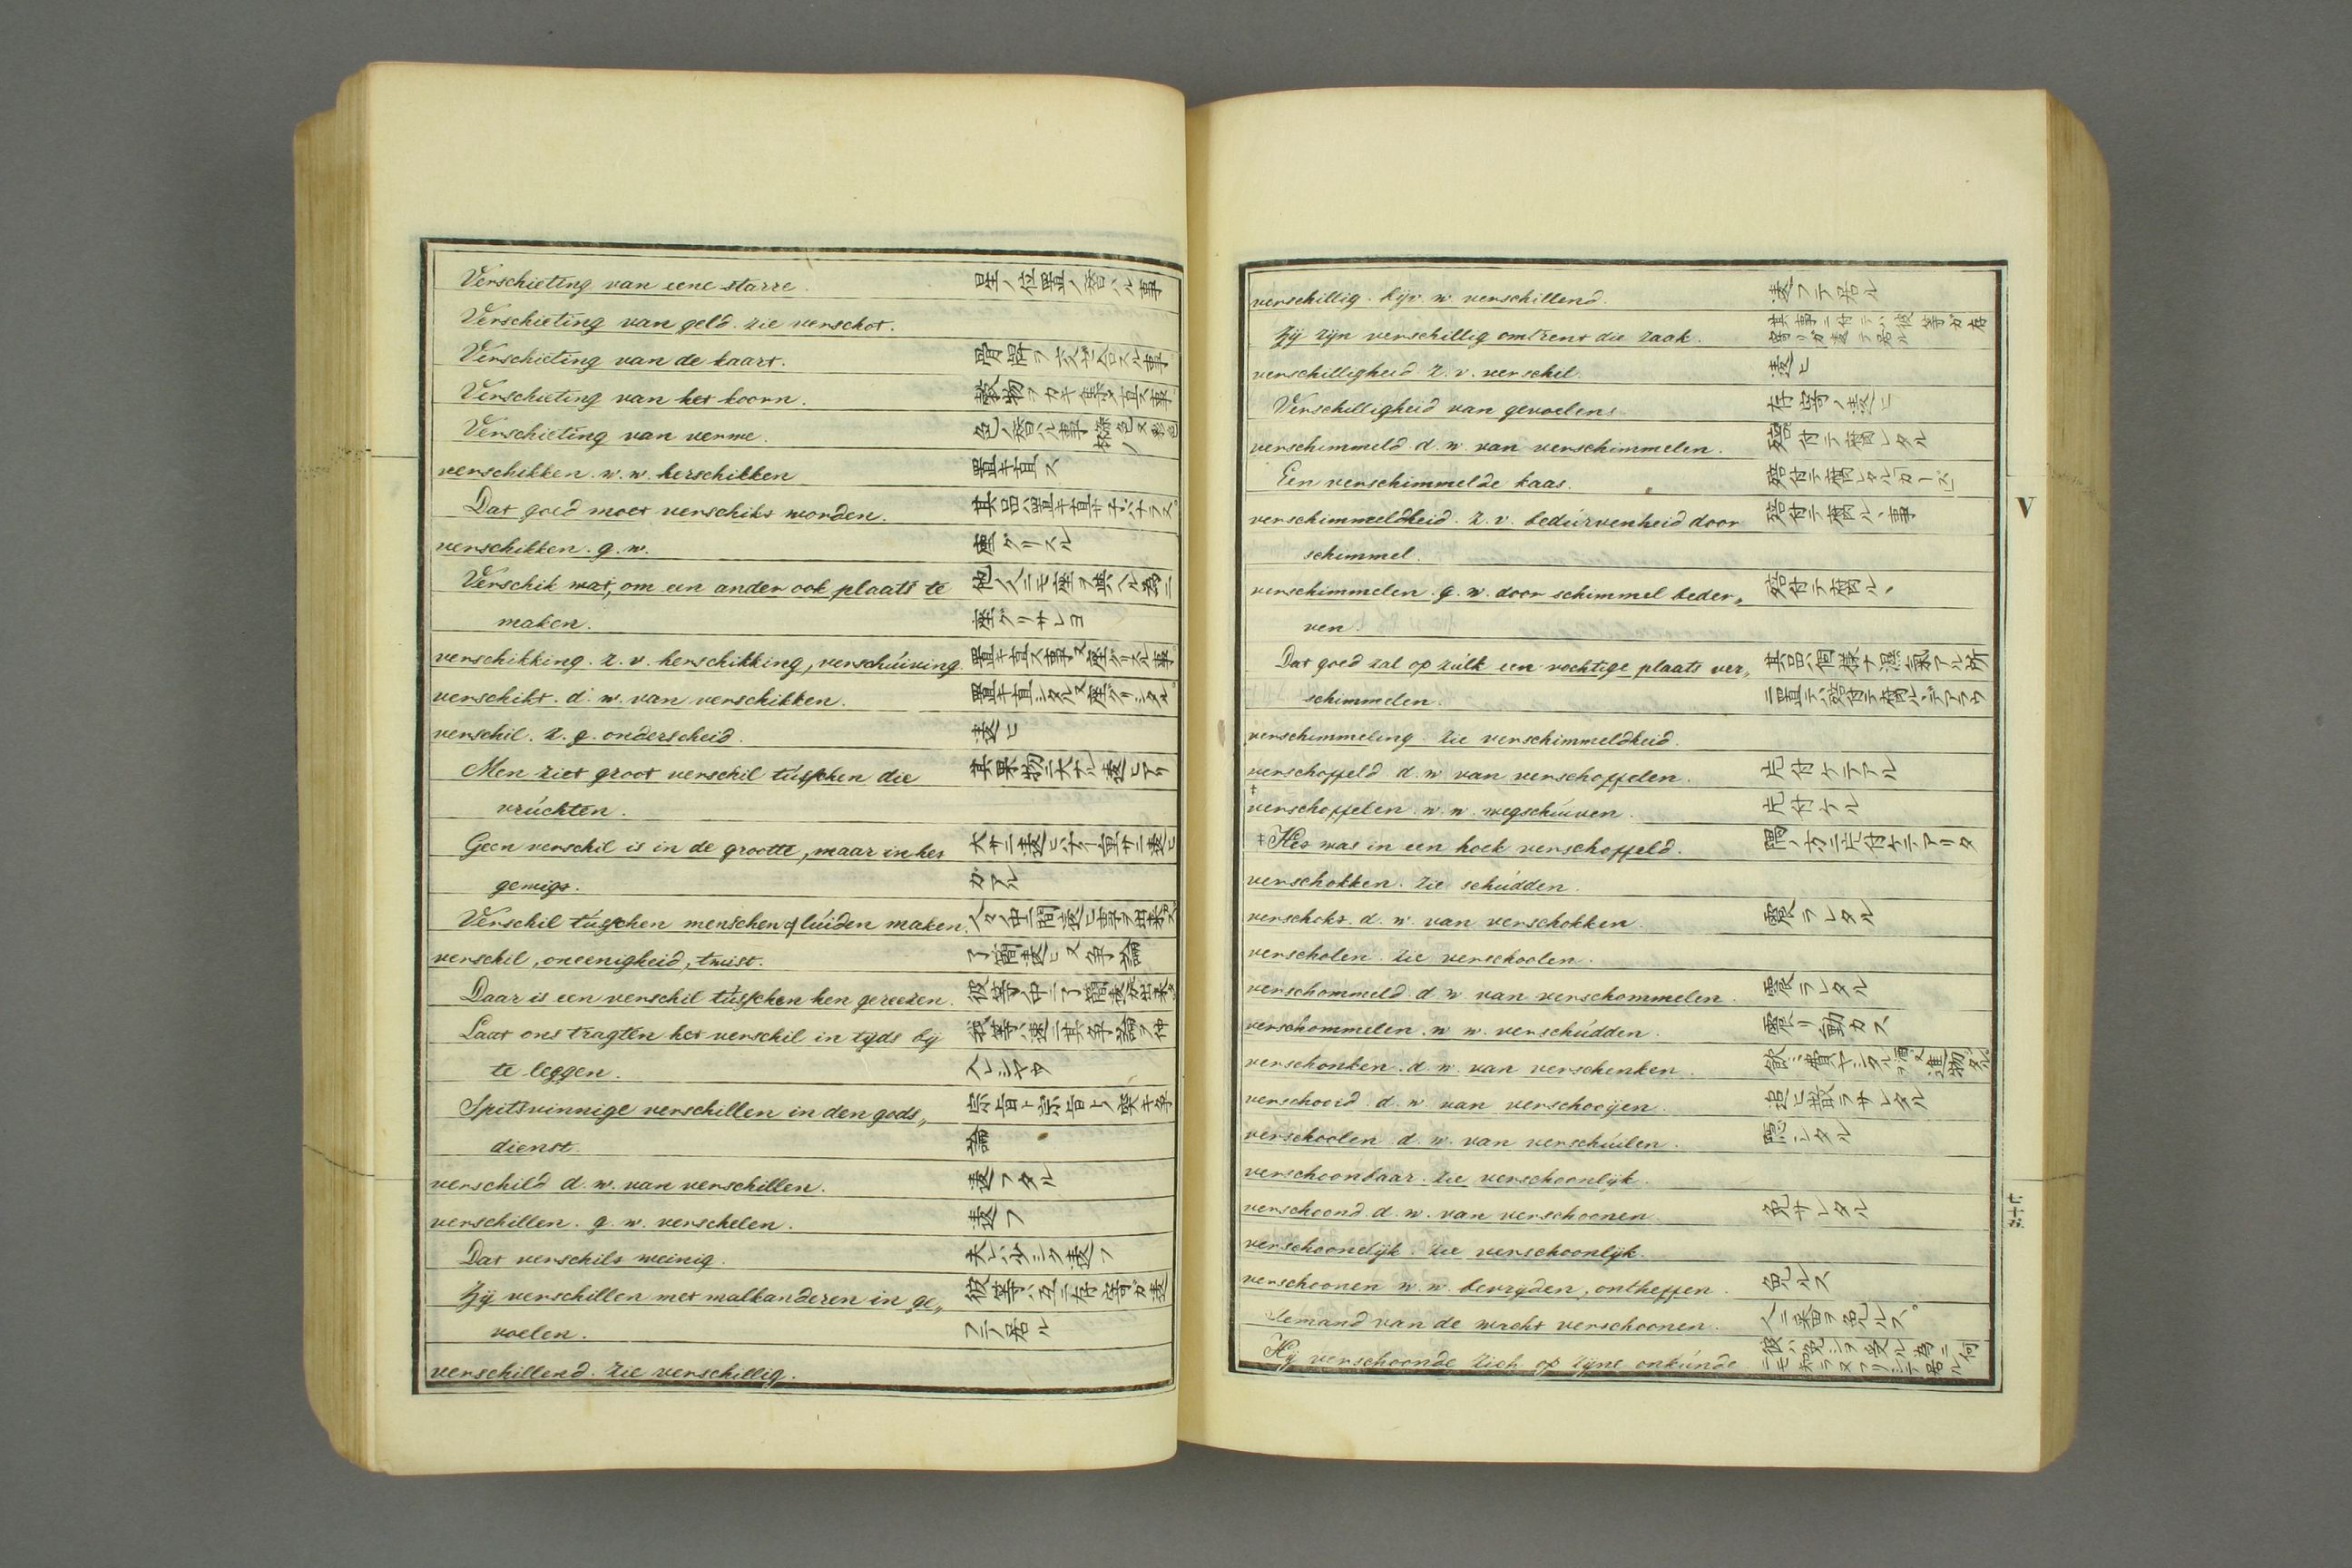 Verschieting van eene starre. 星ノ位置ノ替ハル事
Verschieting van geld. zie verschot.
Verschieting van de kaart. 骨牌ヲ
Verschieting van het koorn. 穀物ヲカキ集メ直ス事
Verschieting van verwe. 色ノ替ハル事
verschikken. w. w. herschikken 置キ直ス
Dat goed moet verschikt worden. 其品ハ置キ直サネバナラヌ
verschikken. g. w. 座グリスル
Verschik wat, om een ander ook plaats te 他ノ人ニモ座ヲ與ヘル為ニ
maken. 座グリサレヨ
verschikking. z. v. herschikking, verschúiving. 置キ直ス事又座グリスル事
verschikt. d. w. van verschikken. 置キ直シタル又座グリシタル
verschil. z. g. onderscheid. 違ヒ
Men ziet groot verschil tússchen die 其果物ニ大ナル違ヒアリ
vrúchten.
Geen verschil is in de grootte, maar in het 大サニ違ヒハナイ重サニ違ヒ
gewigt. ガアル
Verschil tússchen menschen of lúiden maken. 人々ノ中ニ間違ヒ事ヲ出來ス
verschil, oneenigheid, twist. 了簡違ヒ又争論
Daar is een verschil tússchen hen gereezen. 彼等ノ中ニ了簡違ガ出來タ
Laat ons tragten het verschil in tyds bij 我等ハ速ニ其争論ヲ仲
te leggen. 入レシヤウ
Spitsvinnige verschillen in den gods„ 宗旨ト宗旨トノ 争
dienst. 論
verschild d. w. van verschillen. 違フタル
verschillen. g. w. verschelen. 違フ
Dat verschilt weinig. 夫レハ少シク違フ
Zij verschillen met malkanderen in ge„ 彼等ハ互ニ存寄ガ違
voelen. フテ居ル
verschillend. zie verschillig.
verschillig. bijv. w. verschillend. 違フテ居ル
Zij zijn verschillig omtrent die zaak. 其事ニ付テハ彼等ガ存寄リガ違テ居ル
verschilligheid. z. v. verschil. 違ヒ
Verschilligheid van gevoelens 存寄ノ違ヒ
verschimmeld. d. w. van verschimmelen. 付テ腐レタル
Een verschimmelde kaas. 付テ腐レタル「カース」
verschimmeldheid. z. v. bedúrvenheid door 付テ腐ルヽ事
schimmel.
verschimmelen. g. w. door schimmel beder„ 付テ腐ルヽ
ven.
Dat goed zal op zúlk een vochtige plaats ver„ 其品ハ個様ナ濕氣アル所
schimmelen. ニ置テハ 付テ腐ルヽデアラウ
verschimmeling. zie verschimmeldheid.
verschoffeld. d. w. van verschoffelen. 片付ケテアル
verschoffelen. w. w. wegschúiven. 片付ケル
Het was in een hoek verschoffeld. 隅ノ方ニ片付ケテアリタ
verschokken. zie schúdden.
verschokt. d. w. van verschokken. 震ラレタル
verscholen. zie verschoolen.
verschommeld. d. w. van verschommelen. 震ラレタル
verschommelen. w. w. verschúdden. 震リ動カス
verschonken. d. w. van verschenken. 飲ミ費ヤシタル
verschooid. d. w. van verschooijen. 追ヒ散ラサレタル
verschoolen. d. w. van verschúilen. 隠レタル
verschoonbaar. zie verschoonlijk.
verschoond. d. w. van verschoonen. 免サレタル
verschoonelijk. zie verschoonlijk.
verschoonen. w. w. bevrijden, ontheffen. 免ルス
Iemand van de wacht verschoonen. 人ニ番ヲ免ルス。
Hij verschoonde zich op zijne onkúnde 彼ハ免シヲ受ル為ニ何ニモ知ラヌフリシテ居ル
V
七十五